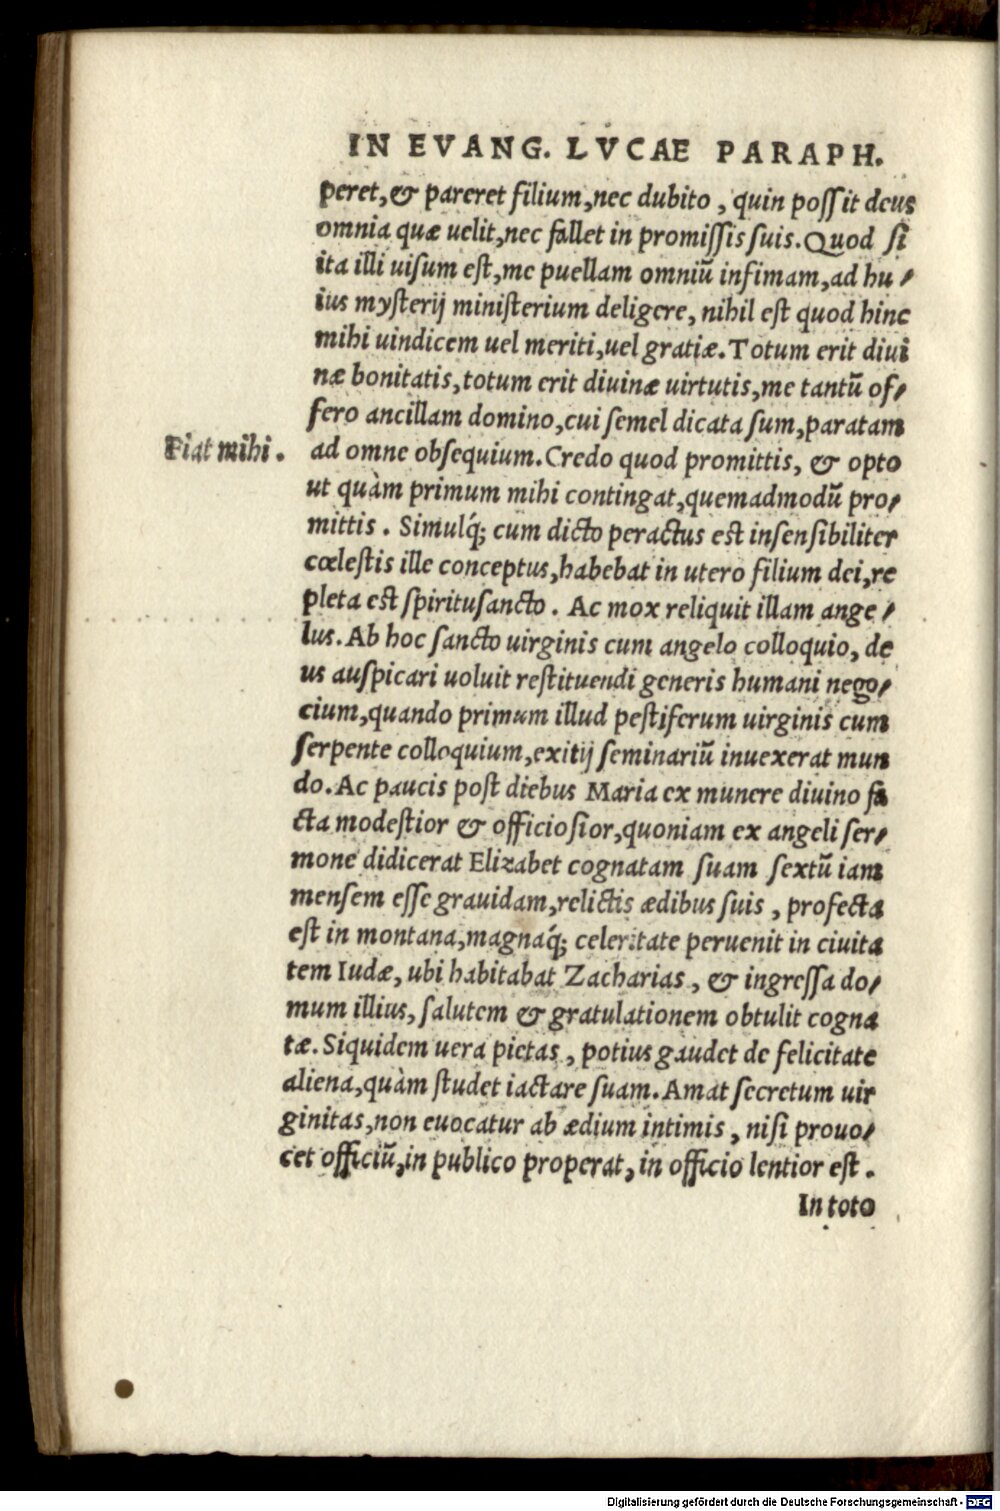 IN EVANG. LVCAE PARAPH.
peret, & pareret filium, nec dubito, quin possit deus
omnia quæ uelit, nec fallet in promissis suis. Quod si
ita illi uisum est, me puellam omniũ infimam, ad hu⸗
ius mysterij ministerium deligere, nihil est quod hinc
mihi uindicem uel meriti, uel gratiæ. Totum erit diui
næ bonitatis, totum erit diuinæ uirtutis, me tantũ of⸗
fero ancillam domino, cui semel dicata sum, paratam
Fiat mihi.
ad omne obsequium. Credo quod promittis, & opto
ut quàm primum mihi contingat, quemadmodũ pro⸗
mittis. Simulq́; cum dicto peractus est insensibiliter
cœlestis ille conceptus, habebat in utero filium dei, re
pleta est spiritusancto. Ac mox reliquit illam ange⸗
lus. Ab hoc sancto uirginis cum angelo colloquio, de
us auspicari uoluit restituendi generis humani nego⸗
cium, quando primum illud pestiferum uirginis cum
serpente colloquium, exitij seminariũ inuexerat mun
do. Ac paucis post diebus Maria ex munere diuino fa
cta modestior & officiosior, quoniam ex angeli ser⸗
mone didicerat Elizabet cognatam suam sextũ iam
mensem esse grauidam, relictis ædibus suis, profecta
est in montana, magnaq́; celeritate peruenit in ciuita
tem Iudæ, ubi habitabat Zacharias, & ingressa do⸗
mum illius, salutem & gratulationem obtulit cogna
tæ. Siquidem uera pietas, potius gaudet de felicitate
aliena, quàm studet iactare suam. Amat secretum uir
ginitas, non euocatur ab ædium intimis, nisi prouo⸗
cet officiũ, in publico properat, in officio lentior est.
In toto
Digitalisierung gefördert durch die Deutsche Forschungsgemeinschaft - DFG